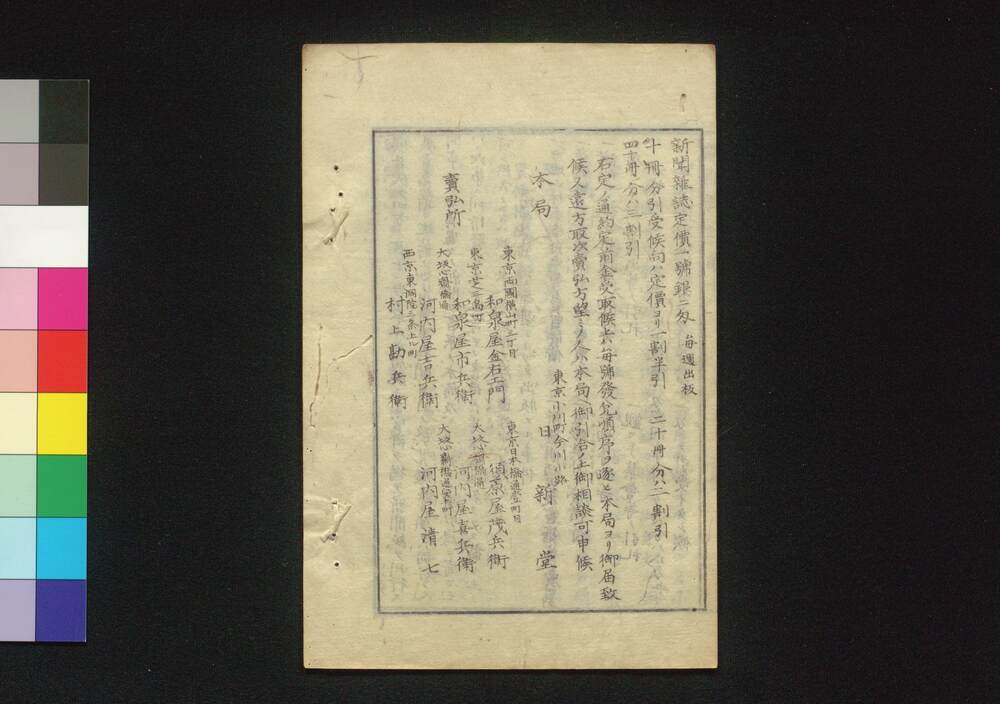 新聞雜誌定價一號銀二匁 毎週出板
十冊分引受候向ハ定價ヨリ一割半引 二十冊分ハ二割引
四十冊分ハ三割引
右定ノ通約定前金受取候上ハ毎號發兌順序ヲ逐ヒ本局ヨリ御届致
候又遠方取次賣弘方望ミノ人ハ本局ヘ御引合ノ上御相談可申候
東京小川町今川小路
本局 日新堂
賣弘所
東京両國横山町三丁目
和泉屋金右エ門
東京日本橋通壹町目
須原屋茂兵衛
東京芝三島町
和泉屋市兵衛
河内屋喜兵衛
河内屋吉兵衛
河内屋清七
西京東洞院三条上ル町
村上勘兵衛